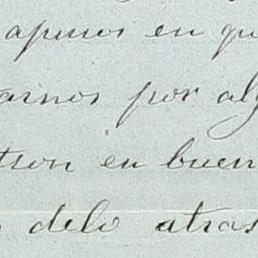 apuros en qu
arnos por alg
tron en buen
delo atras